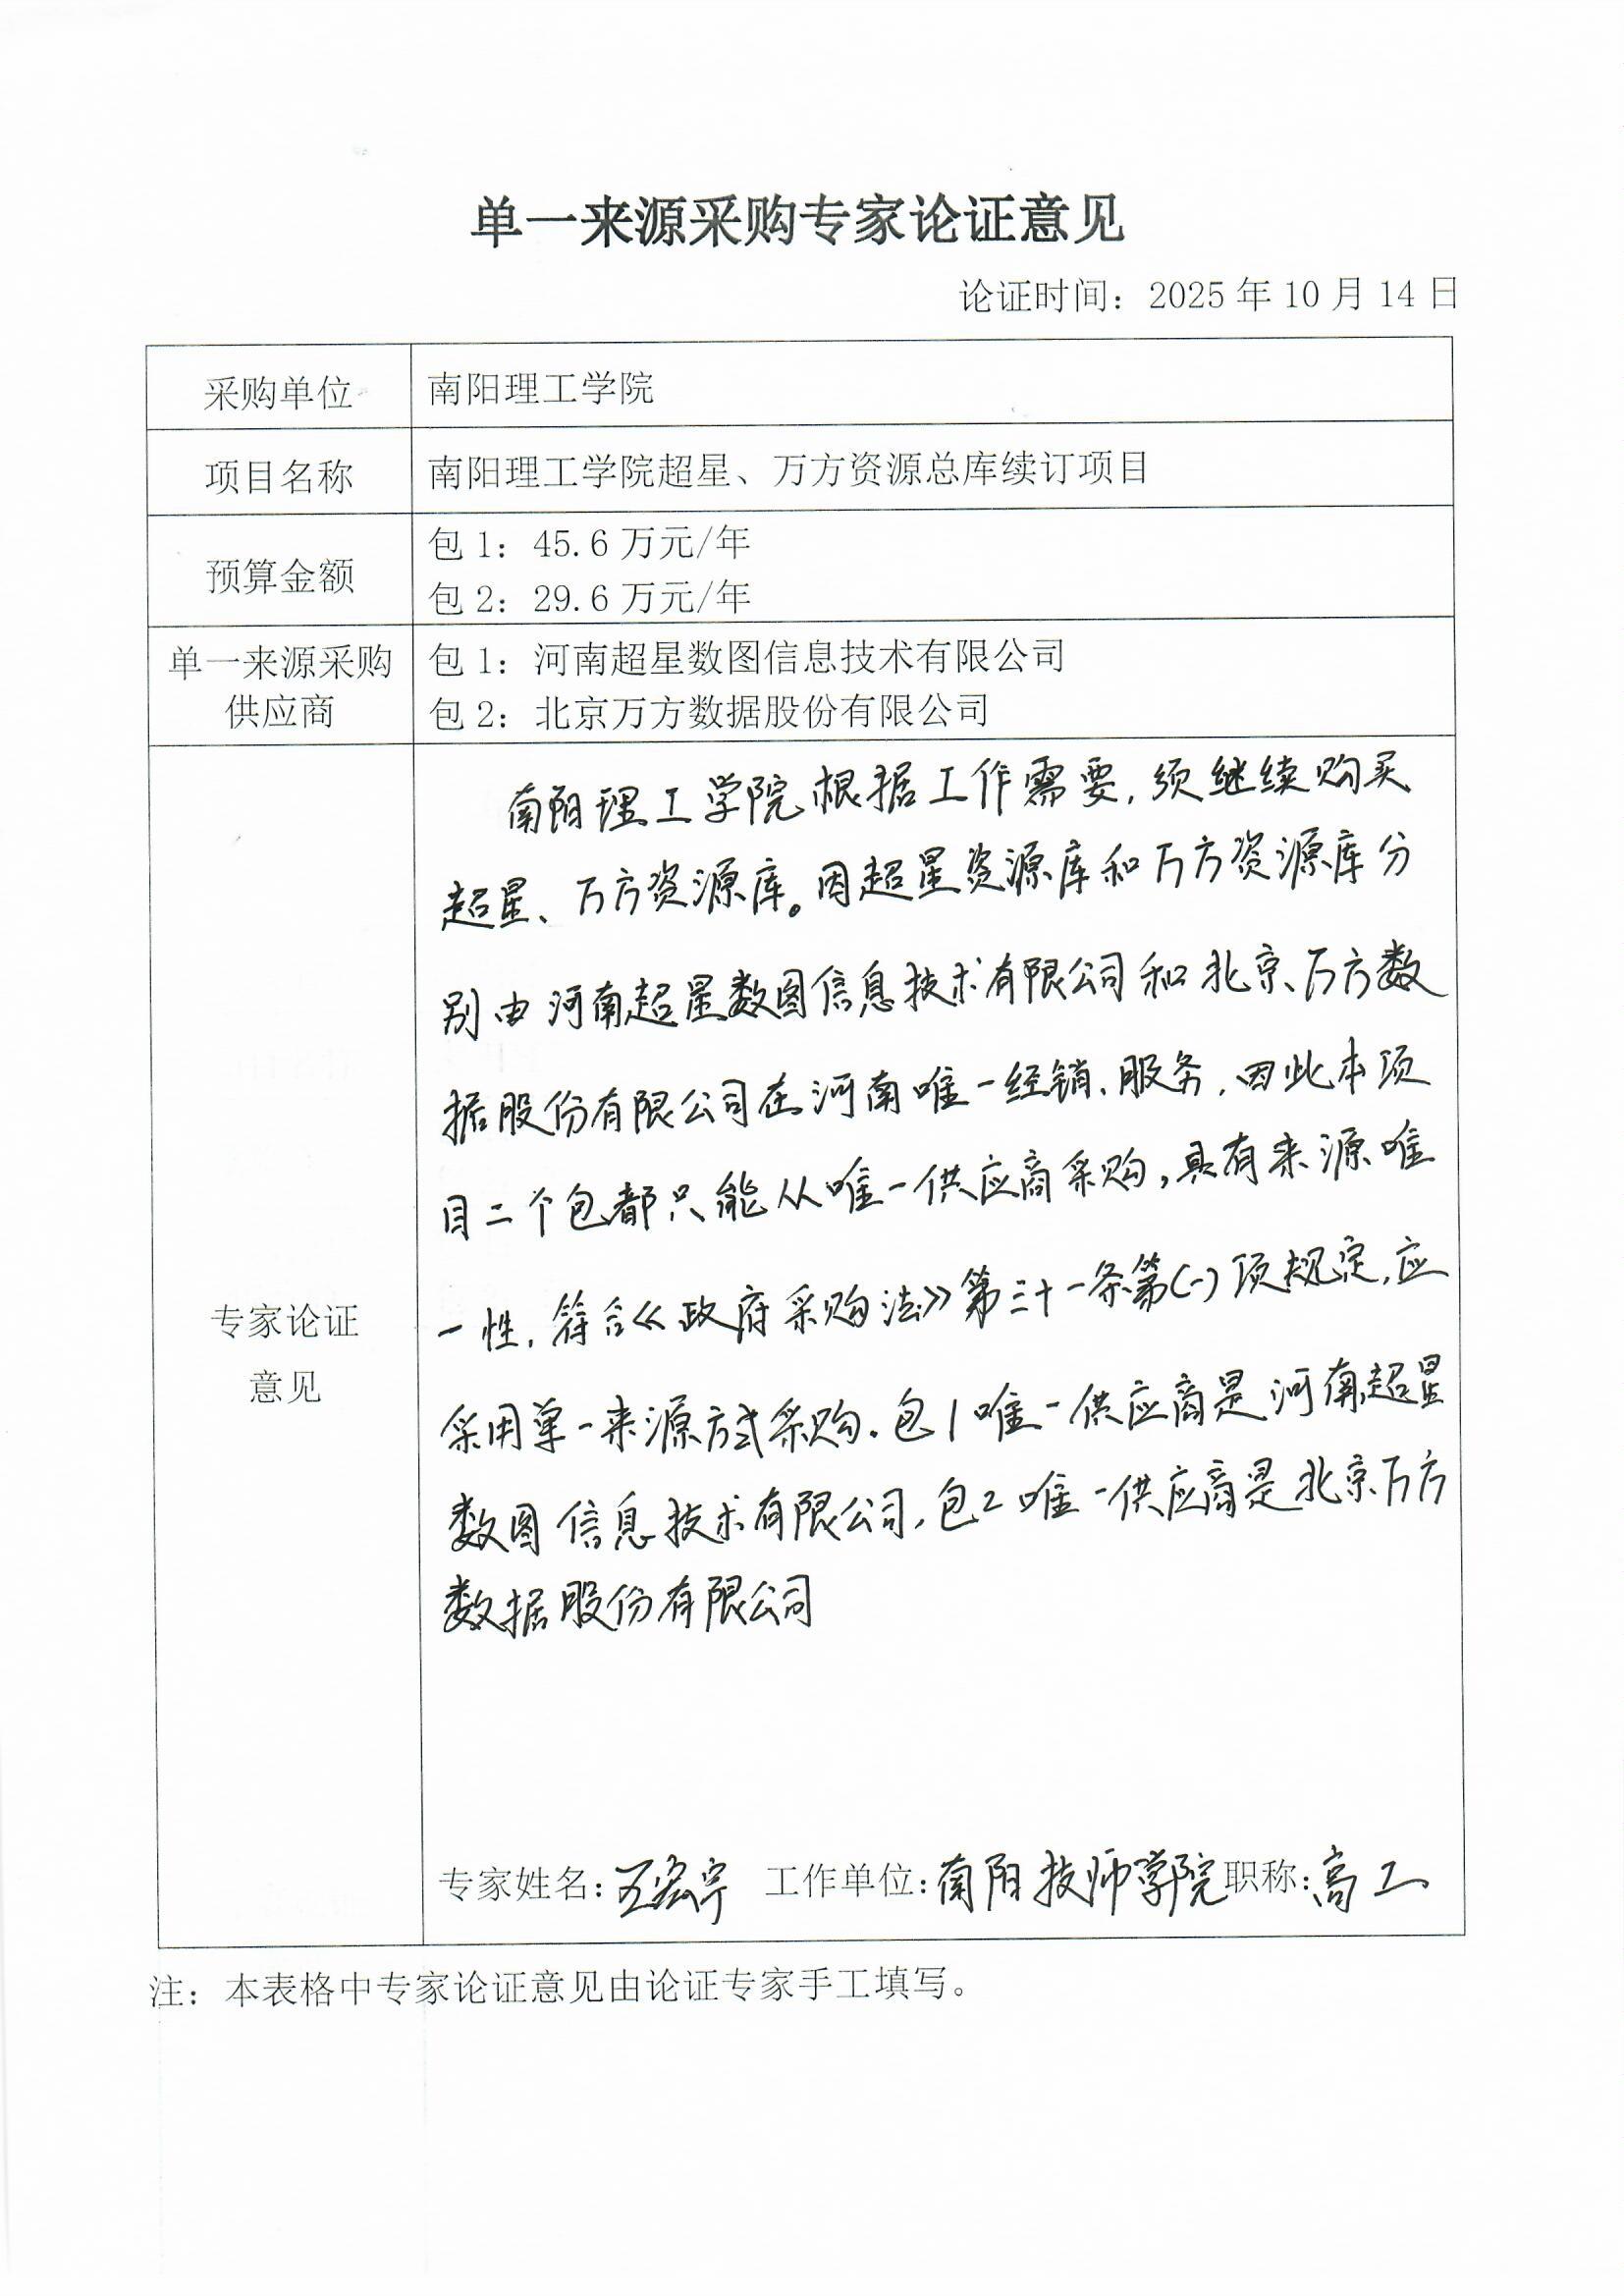 单一来源采购专家论证意见
论证时间：2025年10月14日
采购单位
南阳理工学院
项目名称
南阳理工学院超星、万方资源总库续订项目
预算金额
包1：45.6万元/年
包2：29.6万元/年
单一来源采购
供应商
包1：河南超星数图信息技术有限公司
包2：北京万方数据股份有限公司
专家论证
意见
南阳理工学院根据工作需要，须继续购买
超星、万方资源库。因超星资源库和万方资源库分
别由河南超星数图信息技术有限公司和北京万方数
据股份有限公司在河南唯一经销、服务，因此本项
目二个包都只能从唯一供应商采购，具有来源唯
一性，符合《政府采购法》第三十一条第(一)项规定，应
采用单一来源方式采购。包1唯一供应商是河南超星
数图信息技术有限公司，包2唯一供应商是北京万方
数据股份有限公司
专家姓名：王宏宇 工作单位：南阳技师学院 职称：高工
注：本表格中专家论证意见由论证专家手工填写。